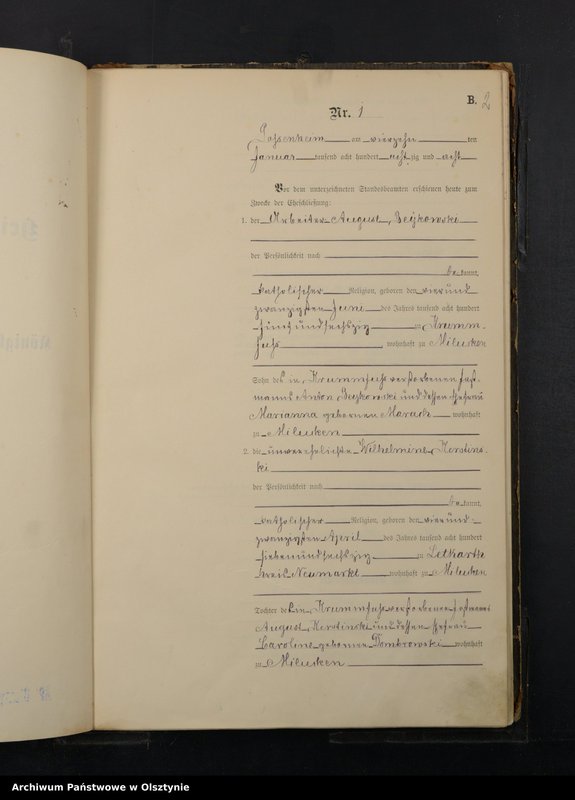 B. 2
Nr. 1
am vierzehn ten
Januar tausend acht hundert acht zig und acht
Vor dem unterzeichneten Standesbeamten erschienen heute zum
Zwecke der Eheschließung:
1. der Arbeiter August
der Persönlichkeit nach
be kannt,
katholischer Religion, geboren den vierund
zwanzigsten Juni des Jahres tausend acht hundert
fünfundsechszig zu Krumm-
fuß, wohnhaft zu Milucken
Sohn des in Krummfuß verstorbenen Jast-
manns Anton und dessen Ehefrau
Marianna geborenen wohnhaft
zu Milucken
2. die unverehelichte Wilhelmine Kerstins-
ki
der Persönlichkeit nach
be kannt,
katholischer Religion, geboren den vierund-
zwanzigsten April des Jahres tausend acht hundert
siebenundsechszig zu
Kreis Neumarkt wohnhaft zu Milucken
Tochter des in Krummfuß verstorbenen
August Kerstinski und dessen Ehefrau
Caroline geborenen Dombrowski wohnhaft
zu Milucken
Archiwum Państwowe w Olsztynie